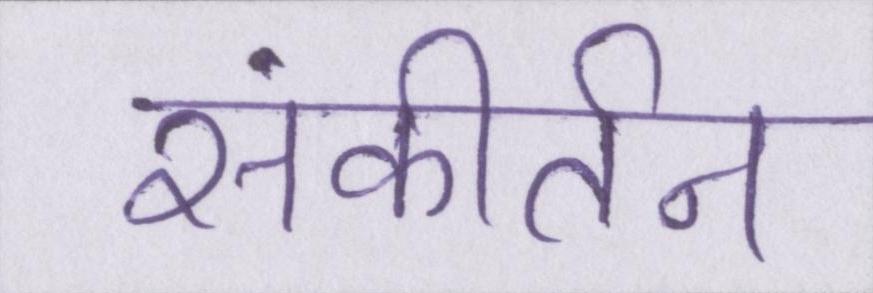 संकीर्तन